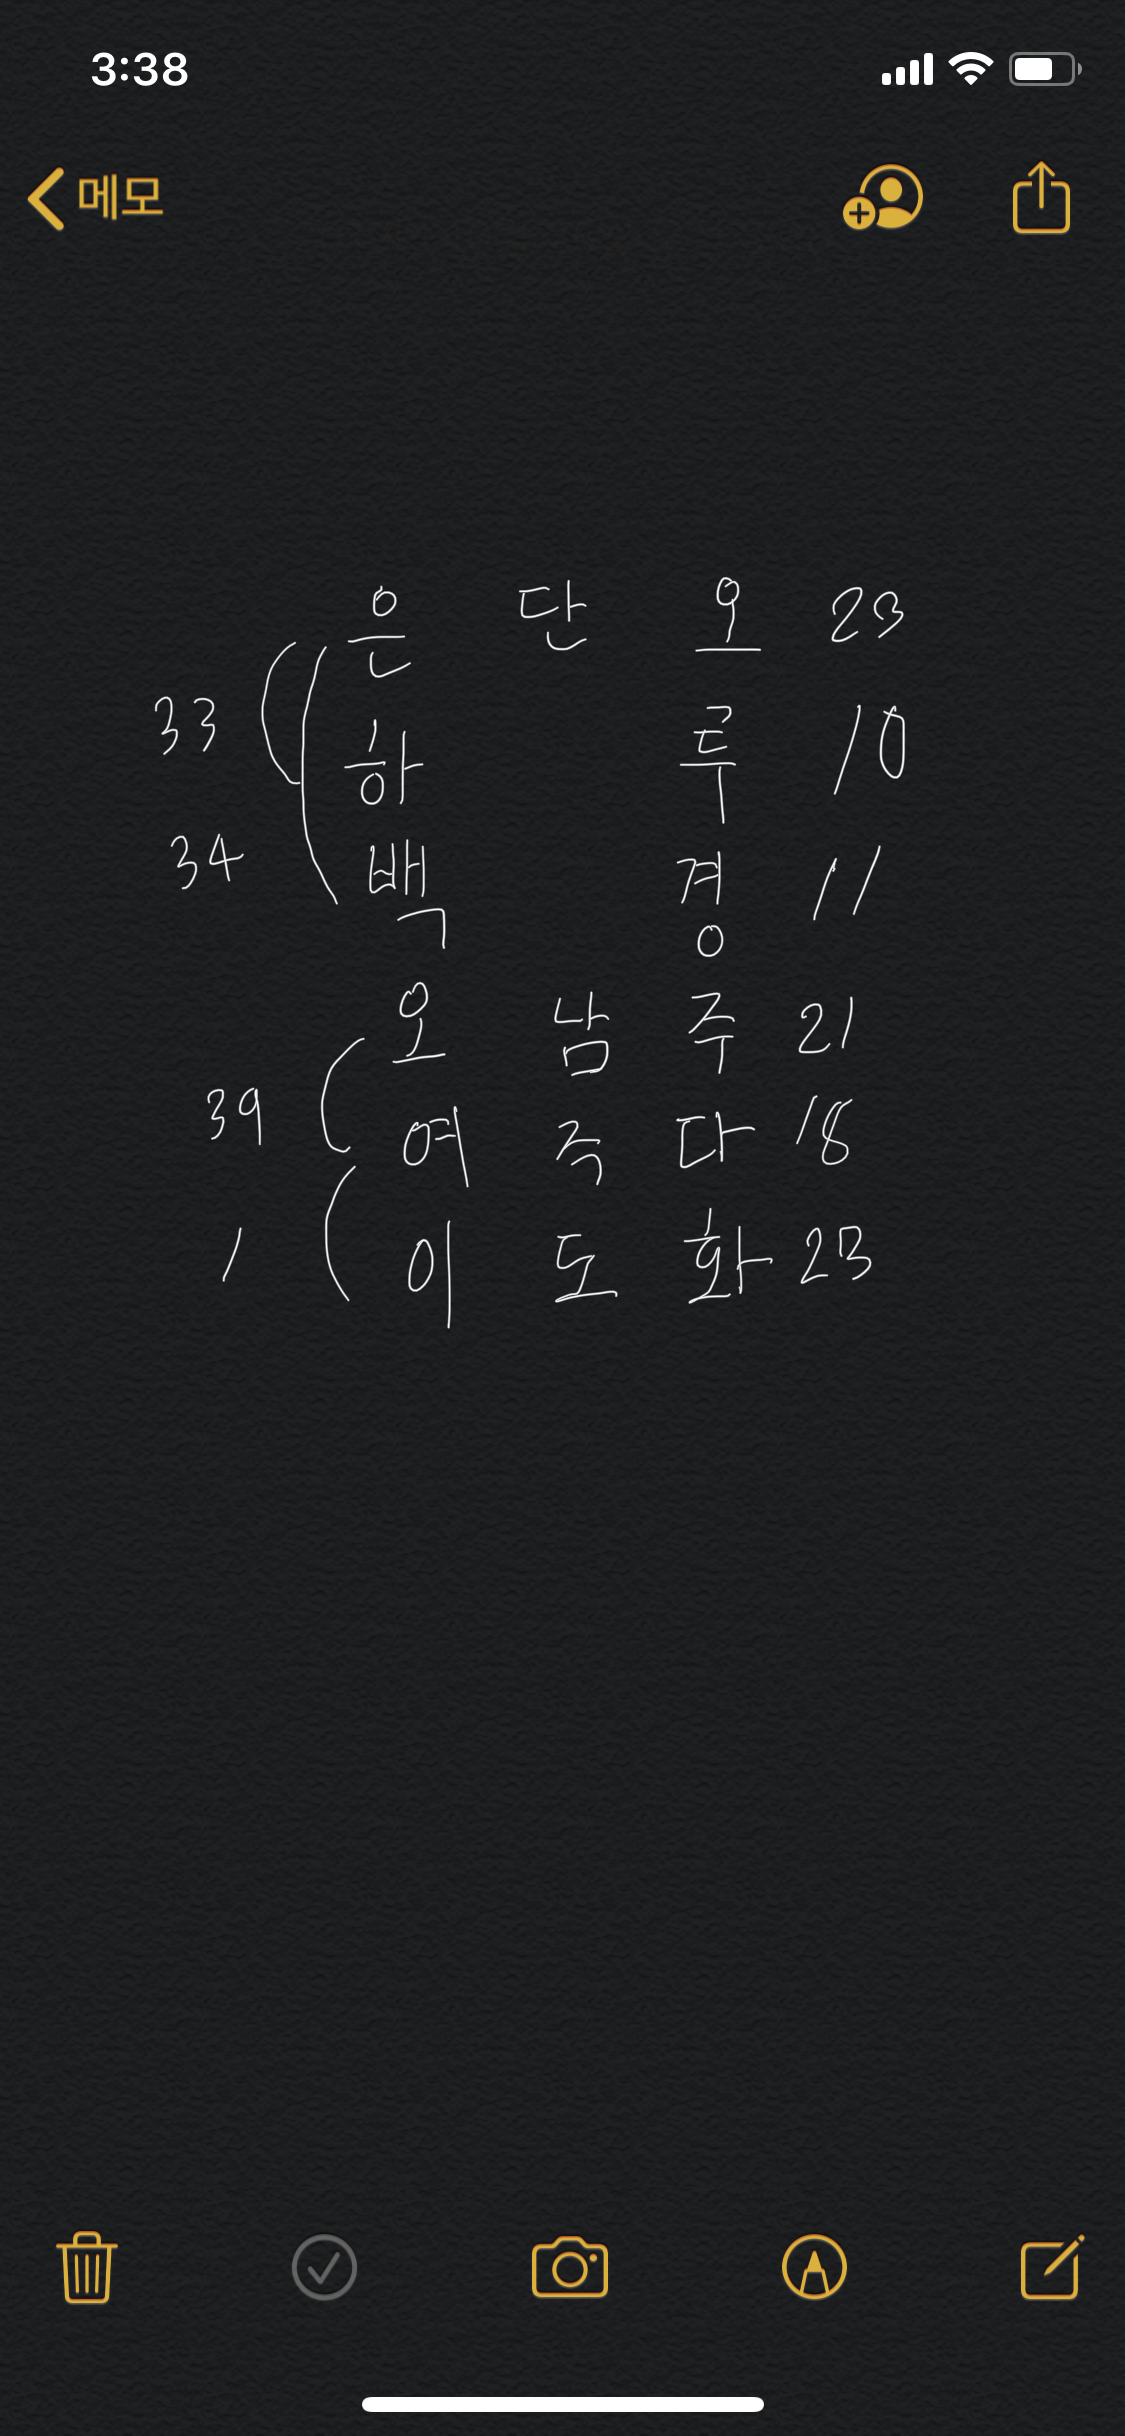 3:38
메모
은 단 오 23
33 하 루 10
34 백 경 11
오 남 주 21
39 여 주 다 18
1 이 도 화 23